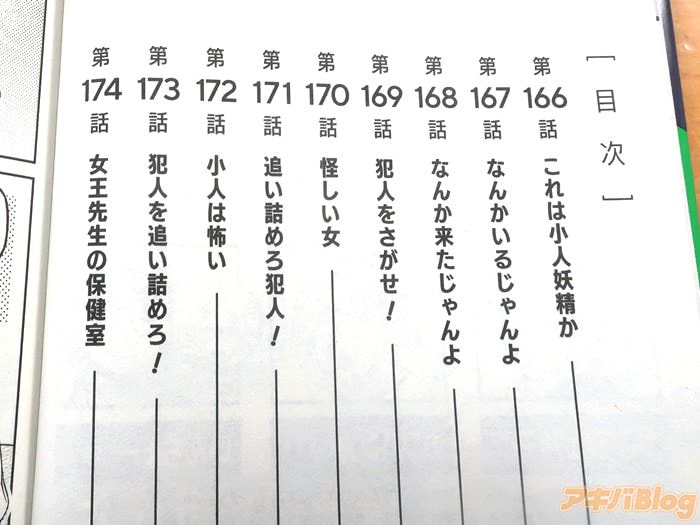 ［目次］
第166話 これは小人妖精か
第167話 なんかいるじゃんよ
第168話 なんか来たじゃんよ
第169話 犯人をさがせ！
第170話 怪しい女
第171話 追い詰めろ犯人！
第172話 小人は怖い
第173話 犯人を追い詰めろ！
第174話 女王先生の保健室
アキバBlog